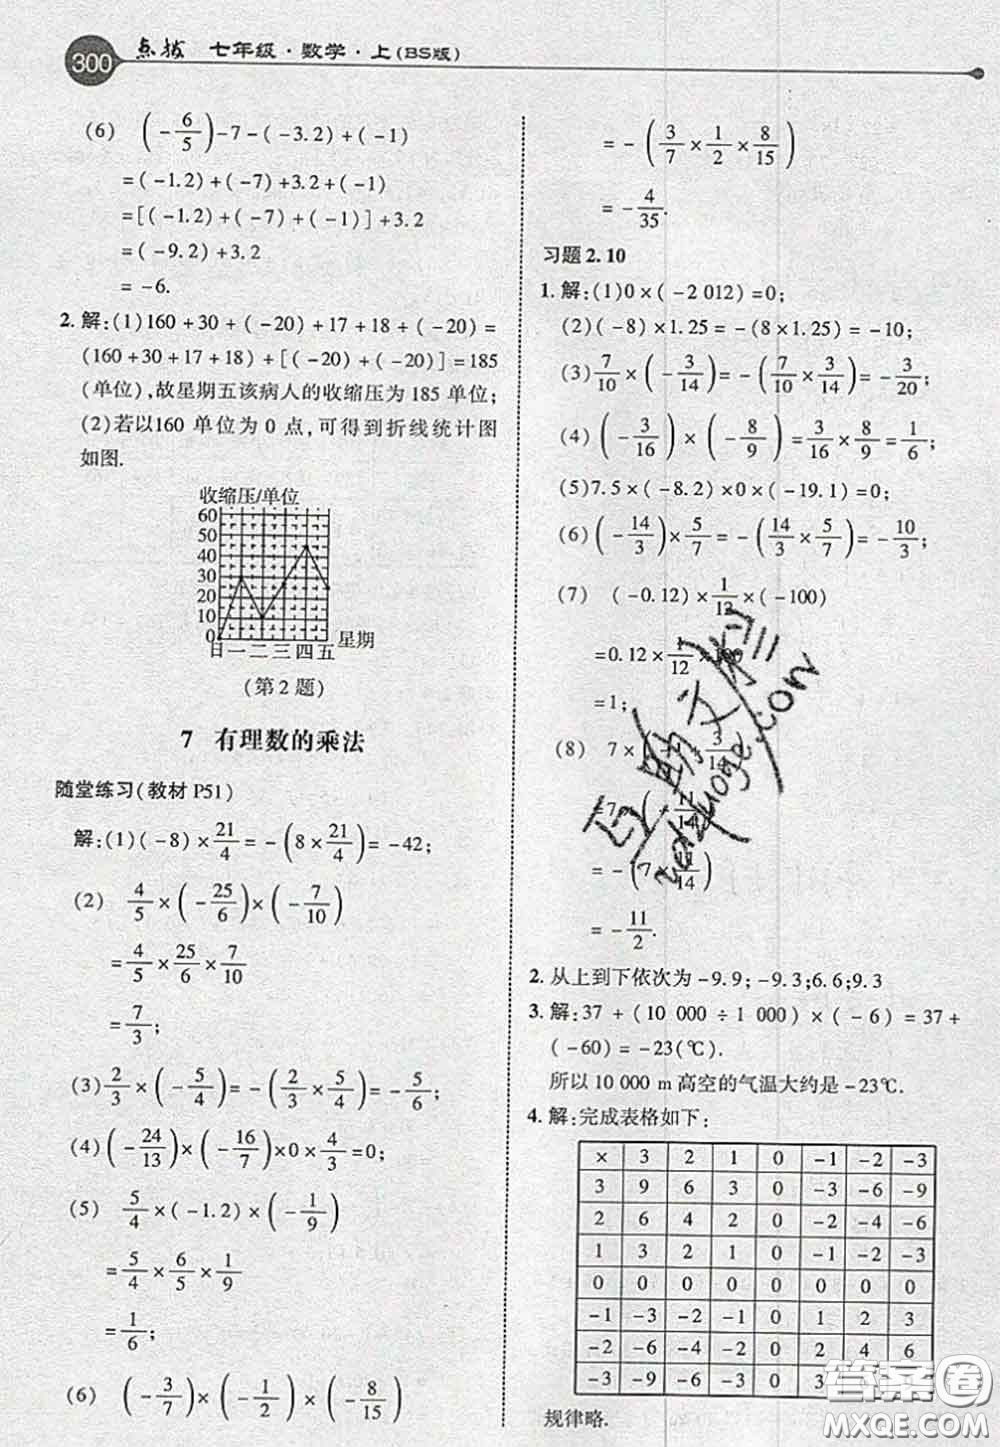 300 点拨 七年级·数学·上(BS版)
(6) (-6/5)-7-(-3.2)+(-1)
=(-1.2)+(-7)+3.2+(-1)
=[(-1.2)+(-7)+(-1)]+3.2
=(-9.2)+3.2
=-6.
2. 解:(1)160+30+(-20)+17+18+(-20)=
(160+30+17+18)+[(-20)+(-20)]=185
(单位),故星期五该病人的收缩压为185 单位;
(2)若以160 单位为 0 点,可得到折线统计图
如图.
收缩压/单位
60
50
40
30
20
10
0
日一二三四五 星期
(第2题)
7 有理数的乘法
随堂练习(教材 P51)
解:(1)(-8)×21/4=-(8×21/4)=-42;
(2) 4/5×(-25/6)×(-7/10)
=4/5×25/6×7/10
=7/3;
(3)2/3×(-5/4)=-(2/3×5/4)=-5/6;
(4)(-24/13)×(-16/7)×0×4/3=0;
(5) 5/4×(-1.2)×(-1/9)
=5/4×6/5×1/9
=1/6;
(6) (-3/7)×(-1/2)×(-8/15)
=-(3/7×1/2×8/15)
=-4/35.
习题2.10
1. 解:(1)0×(-2 012)=0;
(2)(-8)×1.25=-(8×1.25)=-10;
(3)7/10×(-3/14)=-(7/10×3/14)=-3/20;
(4)(-3/16)×(-8/9)=3/16×8/9=1/6;
(5)7.5×(-8.2)×0×(-19.1)=0;
(6)(-14/3)×5/7=-(14/3×5/7)=-10/3;
(7) (-0.12)×1/12×(-100)
=0.12×1/12×100
=1;
(8) 7×(-1+3/14)
=7×(-11/14)
=-(7×11/14)
=-11/2.
2. 从上到下依次为-9.9;-9.3;6.6;9.3
3. 解:37+(10 000÷1 000)×(-6)=37+
(-60)=-23(℃).
所以10 000 m高空的气温大约是-23℃.
4. 解:完成表格如下:
× 3 2 1 0 -1 -2 -3
3 9 6 3 0 -3 -6 -9
2 6 4 2 0 -2 -4 -6
1 3 2 1 0 -1 -2 -3
0 0 0 0 0 0 0 0
-1 -3 -2 -1 0 1 2 3
-2 -6 -4 -2 0 2 4 6
-3 -9 -6 -3 0
规律略.
答案圈
MXQE.COM